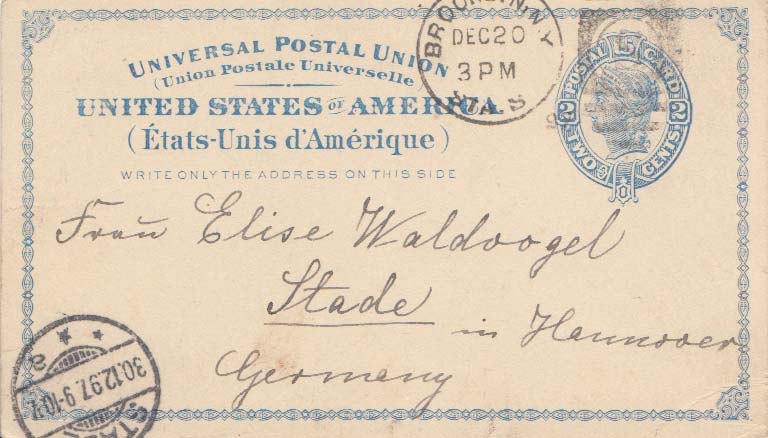 UNIVERSAL POSTAL UNION
(Union Postale Universelle)
UNITED STATES OF AMERICA.
(États-Unis d'Amérique)
WRITE ONLY THE ADDRESS ON THIS SIDE
BROOKLYN, N.Y.
DEC 20
3 PM
STA. S
POSTAL CARD
2 2
TWO CENTS
Frau Elise Waldvogel
Stade in Hannover
Germany
30.12.97. 9-10